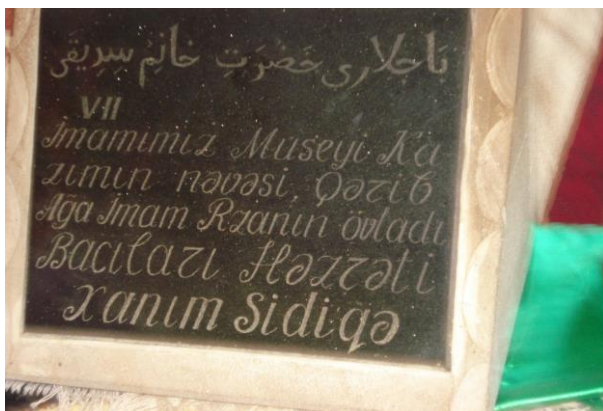 باجلاری حَضْرَتِ خانِمْ سِدِیقَی
VII
İmamımız Museyi Ka
zımın nəvəsi, Qəzib
Ağa İmam Rzanın övladı,
Bacıları Həzrəti
Xanım Sidiqə